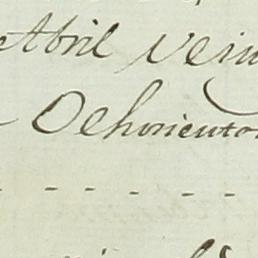 Abril Vein
Ochocientos